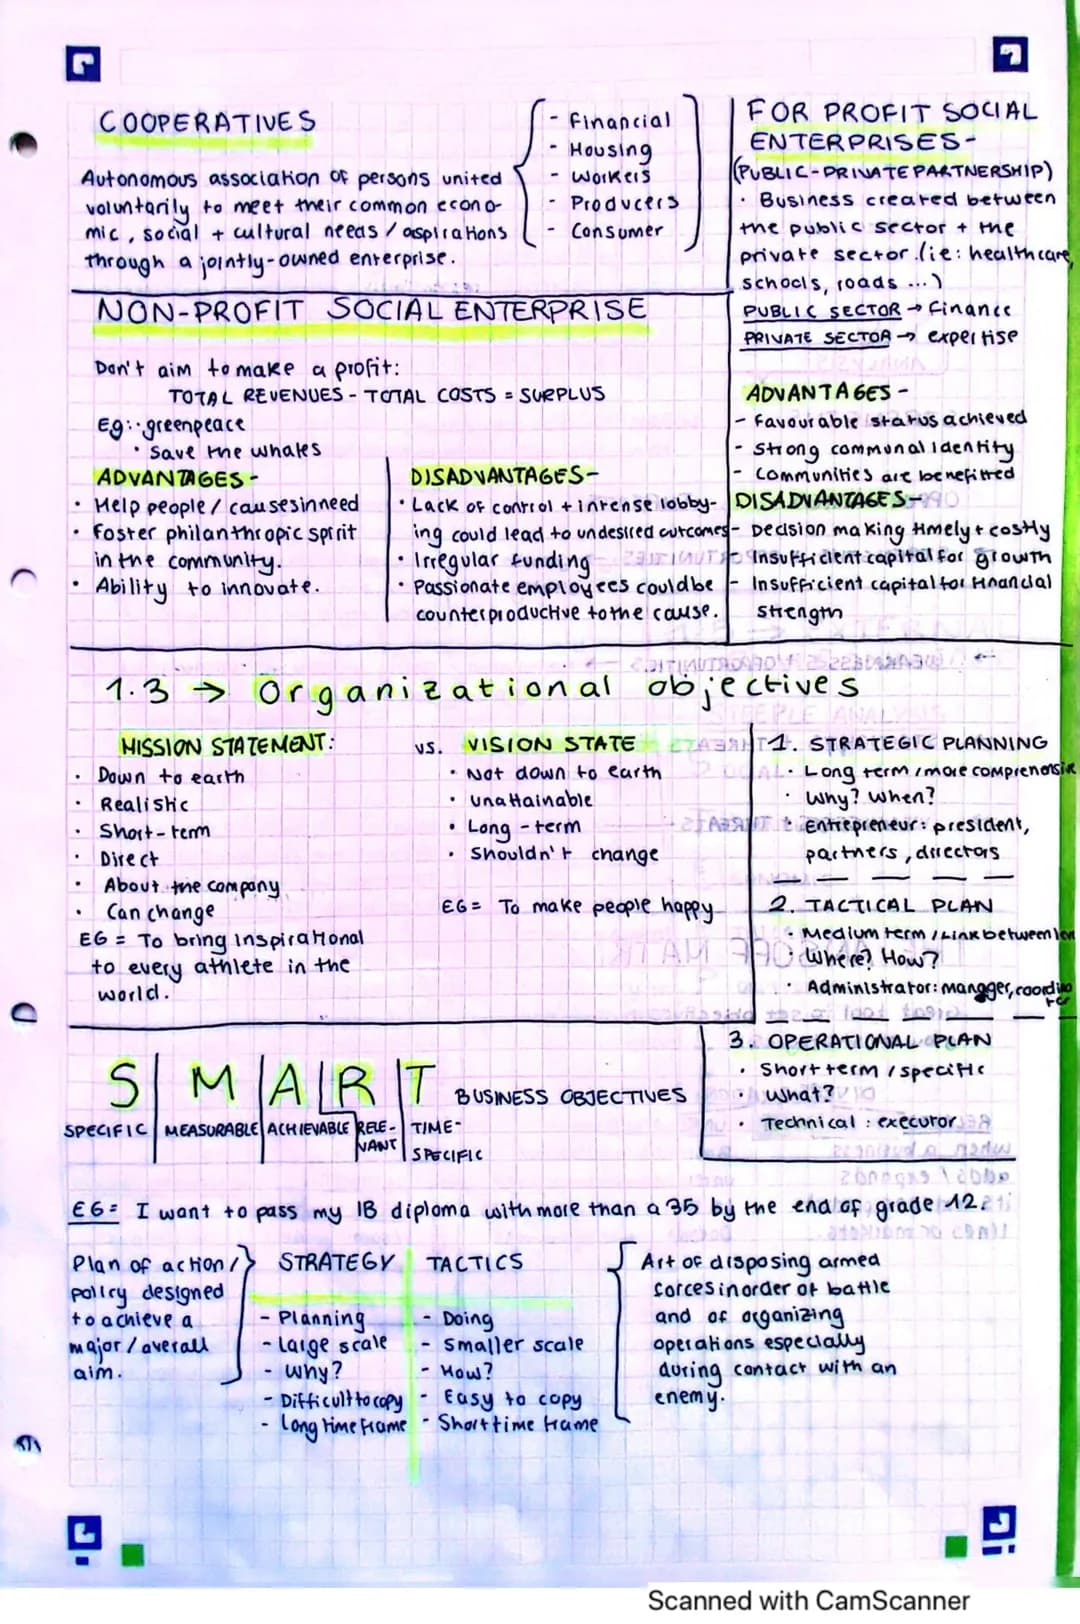 COOPERATIVES
Autonomous association of persons united
voluntarily to meet their common econo-
mic, social + cultural needs / aspirations
through a jointly-owned enterprise.
- Financial
- Housing
- Workers
- Producers
- Consumer
FOR PROFIT SOCIAL
ENTERPRISES-
(PUBLIC-PRIVATE PARTNERSHIP)
· Business created between
the public sector + the
private sector (ie: healthcare,
schools, roads ...)
PUBLIC SECTOR → finance
PRIVATE SECTOR → expertise
ADVANTAGES -
- Favourable status achieved
- Strong communal identity
- Communities are benefitted
DISADVANTAGES-
- Decision making timely + costly
- Insufficient capital for growth
- Insufficient capital for financial
strength
NON-PROFIT SOCIAL ENTERPRISE
Don't aim to make a profit:
TOTAL REVENUES - TOTAL COSTS = SURPLUS
Eg: · greenpeace
· Save the whales
ADVANTAGES -
· Help people / causes in need
· Foster philanthropic spirit
in the community.
· Ability to innovate.
DISADVANTAGES-
· Lack of control + intense lobby-
ing could lead to undesired outcomes
· Irregular funding
· Passionate employees could be
counterproductive to the cause.
1.3 → Organizational objectives
MISSION STATEMENT:
· Down to earth
· Realistic
· Short-term
· Direct
· About the company
· Can change
EG = To bring inspirational
to every athlete in the
world.
vs. VISION STATE
· Not down to earth
· unattainable
· Long-term
· Shouldn't change
EG = To make people happy
1. STRATEGIC PLANNING
· Long term / more comprehensive
· Why? When?
· Entrepreneur: president,
partners, directors
2. TACTICAL PLAN
· Medium term / Link between
· Where? How?
· Administrator: manager, coordinator
3. OPERATIONAL PLAN
· Short term / specific
· What?
· Technical : executor
S M A R T BUSINESS OBJECTIVES
SPECIFIC MEASURABLE ACHIEVABLE RELE-
VANT
TIME-
SPECIFIC
EG= I want to pass my IB diploma with more than a 35 by the end of grade 12.
Plan of action /
policy designed
to achieve a
major / overall
aim.
STRATEGY
- Planning
- Large scale
- Why?
- Difficult to copy
- Long time frame
TACTICS
- Doing
- Smaller scale
- How?
- Easy to copy
- Short time frame
Art of disposing armed
forces in order of battle
and of organizing
operations especially
during contact with an
enemy.
Scanned with CamScanner